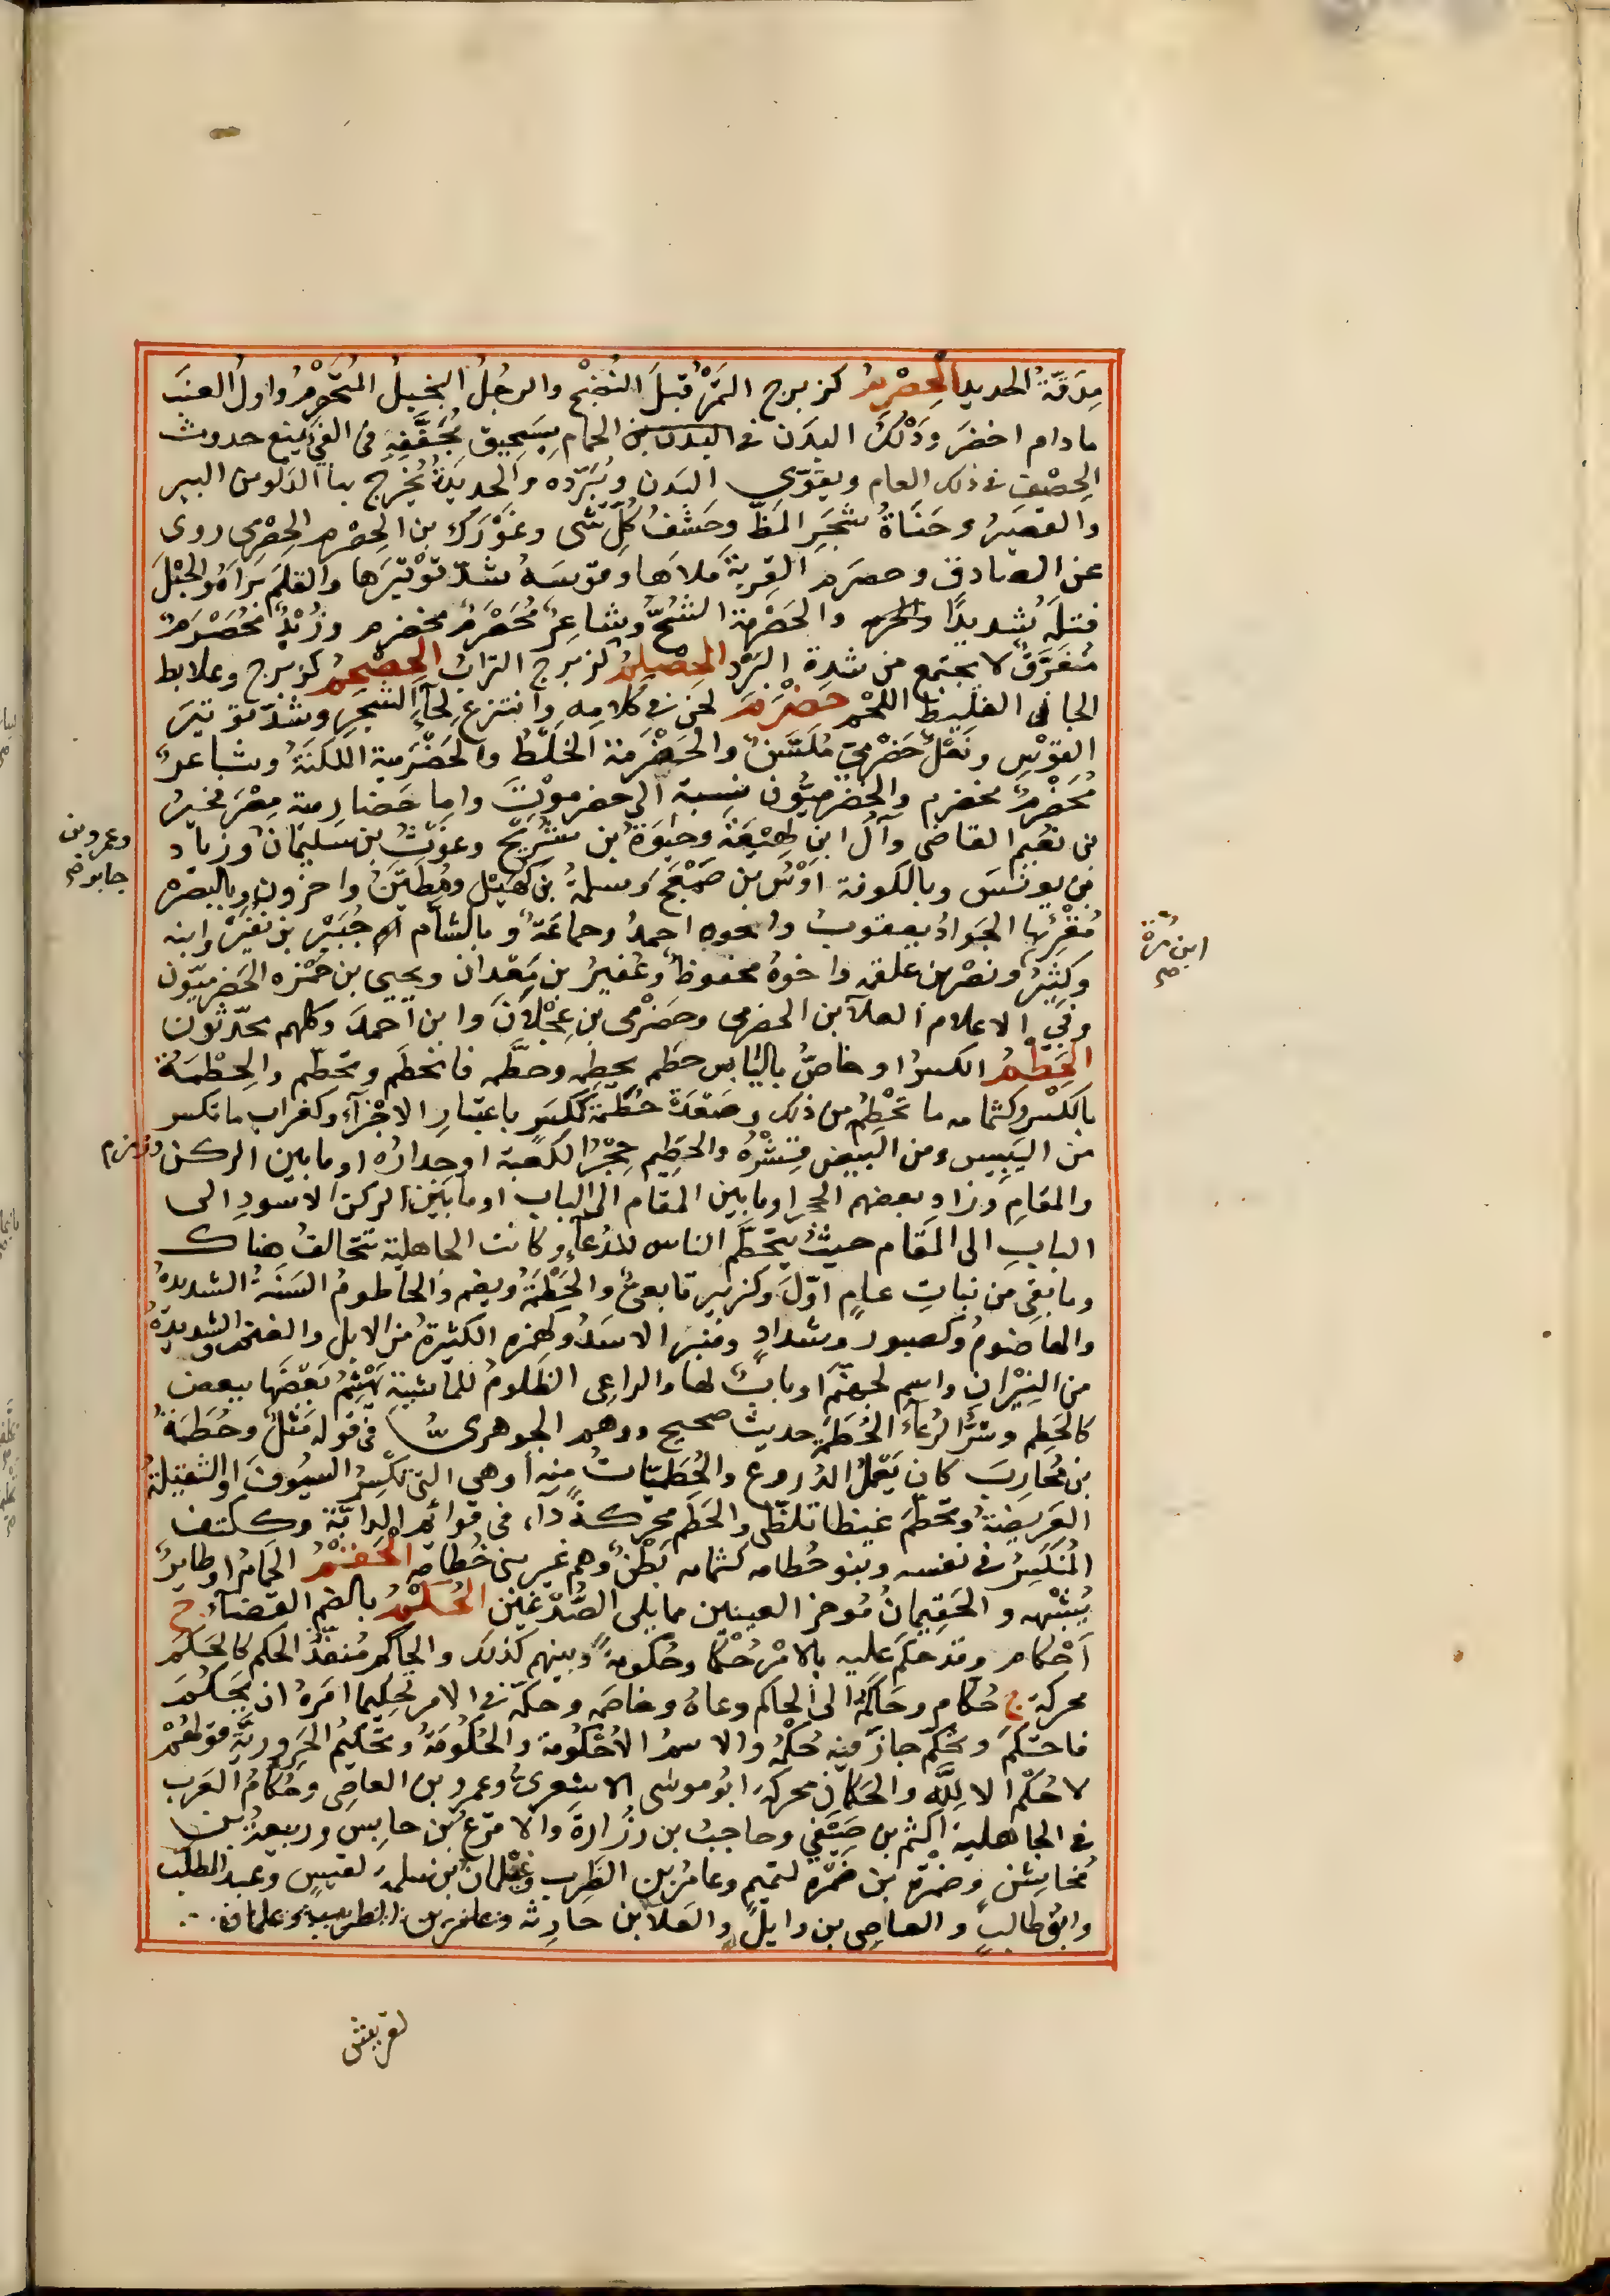 مِدَقّةُ الحديد الحِصْرِمُ كزبرج الثمَرُ قبلَ النُضْجِ والرجُلُ البخيلُ المُتَحَصْرِمُ واولُ العنبِ
مادام اخضرَ ودَلْكُ البدَن فى الحمام بسَحِيق مُجَفَّفِهِ فى الفَىِّ يمنع حدوث
الحِصْف فى ذلك العام ويقوّى البَدن ويُبَرّده والحديَدةُ يُخْرج بها الدَلو من البير
والقصيرُ وحَنَاةُ شجَرِ المَظّ وحَشَفُ كلّ شى وغَوْرَكُ بن الحِصْرم الحِصْرمى روى
عن الصادق وحصرم القِربةَ ملاها وقوسَهُ شدّ توْتيرَها والقلمَ براهُ والحبْلَ
فتلَه شديدًا والحَصْرمة الشُحُّ وشاعِرٌ مُحَصْرَمٌ مخضرم وزُبْدٌ مُحَصْرَمٌ
مُتفَرّقٌ لا يجتمع من شدة البَرْد الحِصْلِمُ كزبرج الترابُ الحِضْجِمُ كزبرج وعلابط
الجافى الغليظ اللحْم حَضْرَمَ لحَنَ فى كلامِه وانتزع لِحآءَ الشجَرِ وشدّ توتيرَ
القوْسِ ونعْلٌ حَضْرمىّ مُلَسَّنٌ والحَضْرَمة الخَلْطُ والحَضْرَمية اللُكْنَةُ وشاعرٌ
مُحَضْرَمٌ مخضرم والحَضْرَميّون نسبة الى حضرموْتَ واما حَضارِمة مِصْرَ فخيرُ
بن نُعَيم القاضى وآلُ ابن لَهِيْعَة وحَيوَةُ بن شُرَيح وغَوْثُ بن سليمَانَ وزياد
بن يونسَ وبالكوفة اوْسُ بن ضَمْعَج وسلمةُ بن كُهَيْلٍ ومُطَيَّنٌ واخرون وبالبَصْره
مُقْرِئها الجَوادُ يعقوبُ واخوه احمدُ وجماعَةٌ وبالشام جُبَيْر بن نُفَيْرٌ وابنه
وكَثِيرُ ونصْرُ بن علقمه واخوهُ محفوظٌ وعُفيرُ بن مَعْدان ويحيى بن حَمْزه الحَضْرميّون
وفى الاعلام العلآ بن الحضرمى وحَضْرَمى بن عَجْلَانَ وابن احمدَ وكلهم محدّثون
الحَطْمُ الكسرُ او خاصٌّ باليابس حطَم يحطِمه وحطَّمه فانحطَم وتحطّم والحِطْمَةُ
بالكسْر وكثمامه ما تحْطِّم من ذلك وصَعْدَة حُطَمةٌ ككِسَرٍ باعتبارِ الاجْزآء وكغراب ما تكسر
من اليَبِيس ومن البَيض قِشْرُهُ والحَطِيم حِجْرُ الكَعبة او جدارُه او ما بين الركن وزمزم
والمقامِ وزاد بعضهم الحجر او ما بين المقام الى الباب او ما بَيْنَ الركن الاسودِ الى
البابِ الى المَقام حيثُ يتحَطّم الناس للدُعآءِ وكانت الجاهلية تتحالفُ هناك
وما بقِى من نباتِ عامٍ اوّلَ وكزبير تابعىٌّ والحَطْمَةُ ويضم والحاطومُ السنَةُ الشديدةُ
والهاضومُ وكصبور وشدادٍ ومنبر الاسَدُ وكهمزه الكثيرةُ من الابل والغنم والشديدةُ
من النِيْرانِ واسم لجهنّم او بابٌ لها والراعِى الظَلومُ للماشيةِ يَهْشِمُ بعْضَها ببعض
كالحُطَم وشرُّ الرُعآءِ الحُطَمةُ حديثٌ صحيح ووهم الجوهرىُّ فى قوله مَثلٌ وحُطَمَةُ
بن مُحارِبَ كان يَعْملُ الدُروعَ والحُطَمِيّاتُ منِه او هى التى تكْسِرُ السيُوفَ او الثقيلةُ
العَرِيضةُ وتحَطّمَ غيظا تلظّى والحَطَم محركةً دآء فى قوائم الدابّة وككتف
المُتَكسِرُ فى نفسه وبنو حُطامه كثمامه بَطْنٌ وهم غير بنى خُطامة الحَقْمُ الحَمامُ او طائِرٌ
يُشْبُهه والحَقِيمانُ مُوخر العينين مما يلى الصُدْغَيْن الحُكْمُ بالضم القضآء ج
أحْكام وقد حكمَ عليه بالامْر حُكْمًا وحُكومةً وبينهم كذلك والحاكم مُنفّذُ الحكم كالحَكَم
محركة ج حُكام وحَاكَمَهُ الى الحاكم دعاهُ وخاصَمه وحكّمه فى الامر تحكِيما امَرهُ ان يَحكُمَ
فاحتكم وتحكّم جازَ فيه حُكْمُهُ والاسمُ الاُحْكُومة والحُكُومَةُ وتحكيمُ الحَرُوريَّةِ قولهُمْ
لا حُكْم الا لِلّهِ والحَكَمان محركة ابُو موسى الاشعرىُّ وعمرو بن العاصِى وحُكامُ العَرب
فى الجاهلية اكثَم بن صَيْفي وحاجبُ بن زُرارةَ والاقرعُ بن حابِس وربيعةُ بن
مُخاشن وضَمْرة بن ضَمْره لتميم وعامرُ بن الظَرِب وغيْلانُ بن سلمةَ لقيسٍ وعبد المطلب
وابُو طالبٍ والعاصِى بن وايلٍ والعَلا بن حارِثه
لقريش
وعمرو بن
جابر صح
ابن مُرّة
صح